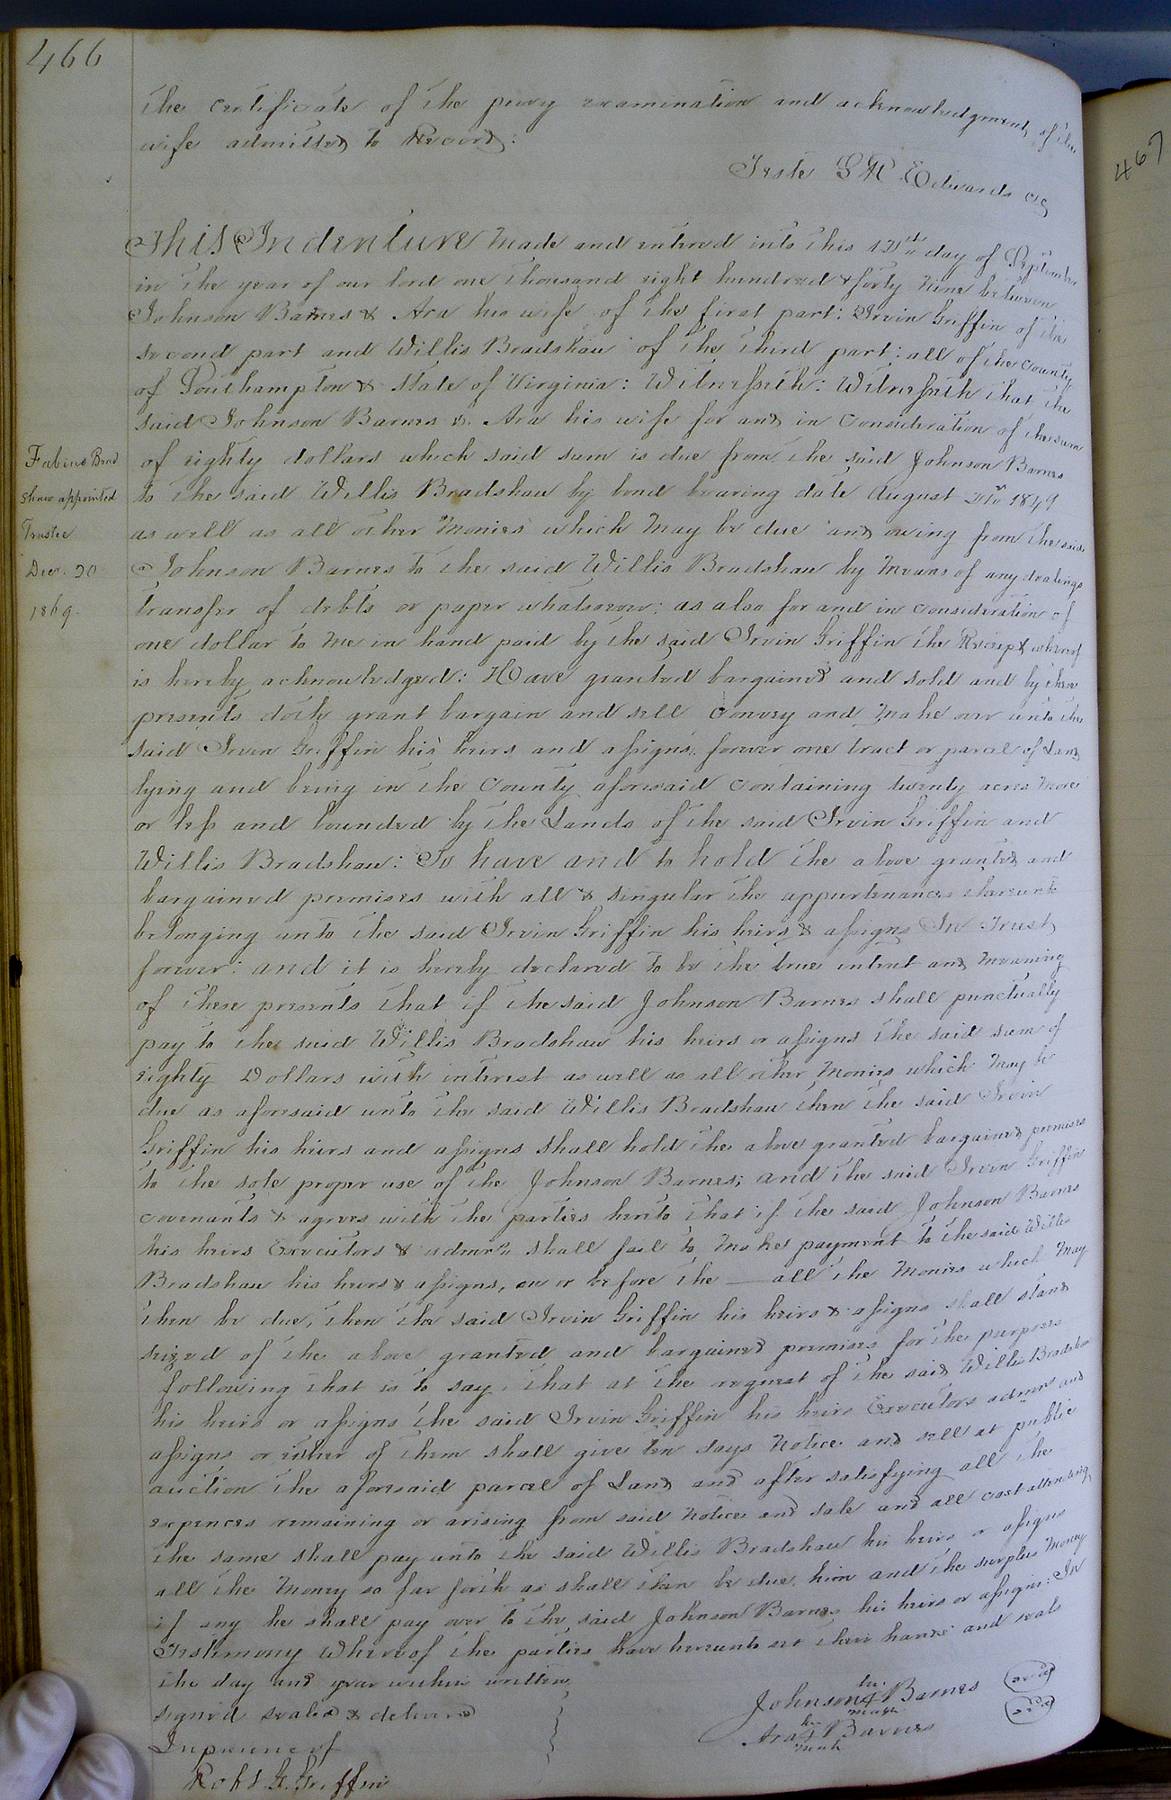 466
467
the certificate of the privy examination and acknowledgment of the
wife admitted to Record:
Teste L R Edwards CC
This Indenture Made and entered into this 12th day of September
in the year of our lord one thousand eight hundred & forty Nine between
Johnson Barnes & Ara his wife of the first part: Irvin Griffin of the
second part and Willis Bradshaw of the third part: all of the County
of Southampton & State of Virginia: Witnesseth: Witnesseth that the
said Johnson Barnes & Ara his wife for and in Consideration of the sum
of eighty dollars which said sum is due from the said Johnson Barnes
to the said Willis Bradshaw by bond bearing date August 1849
as well as all other Monies which May be due and owing from the said
Johnson Barnes to the said Willis Bradshaw by Means of any dealings
transfer of debts or paper whatsoever: as also for and in consideration of
one dollar to me in hand paid by the said Irvin Griffin the Receipt whereof
is hereby acknowledged: Have granted bargained and sold and by these
presents doth grant bargain and sell Convey and Make over unto the
said Irvin Griffin his heirs and assigns forever one tract or parcel of Land
lying and being in the County aforesaid Containing twenty acres More
or less and bounded by the Lands of the said Irvin Griffin and
Willis Bradshaw: To have and to hold the above granted and
bargained premises with all & singular the appurtenances thereunto
belonging unto the said Irvin Griffin his heirs & assigns In Trust
forever: and it is hereby declared to be the true intent and Meaning
of these presents that if the said Johnson Barnes shall punctually
pay to the said Willis Bradshaw his heirs or assigns the said sum of
eighty Dollars with interest as well as all other Monies which May be
due as aforesaid unto the said Willis Bradshaw then the said Irvin
Griffin his heirs and assigns shall hold the above granted bargained premises
to the sole proper use of the Johnson Barnes; and the said Irvin Griffin
covenants & agrees with the parties hereto that if the said Johnson Barnes
his heirs Executors & admrs shall fail to Make payment to the said Willis
Bradshaw his heirs & assigns, on or before the — all the Monies which May
then be due, then the said Irvin Griffin his heirs & assigns shall stand
seized of the above granted and bargained premises for the purposes
following that is to say, that at the request of the said Willis Bradshaw
his heirs or assigns the said Irvin Griffin his heirs Executors admrs and
assigns or either of them shall give ten days Notice and sell at public
auction the aforesaid parcel of Land and after satisfying all the
expences remaining or arising from said Notice and sale and all cost attending
the same shall pay unto the said Willis Bradshaw his heirs or assigns
all the Money so far forth as shall then be due him and the surplus Money
if any he shall pay over to the said Johnson Barnes his heirs or assigns: In
Testimony Whereof the parties have hereunto set their hands and seals
the day and year within written
signed sealed & delivered
In presence of
Robt G. Griffin
his
Johnson Barnes seal
mark
Ara Barnes seal
mark
Fabius Brad
shaw appointed
Trustee
Dec. 20
1869.